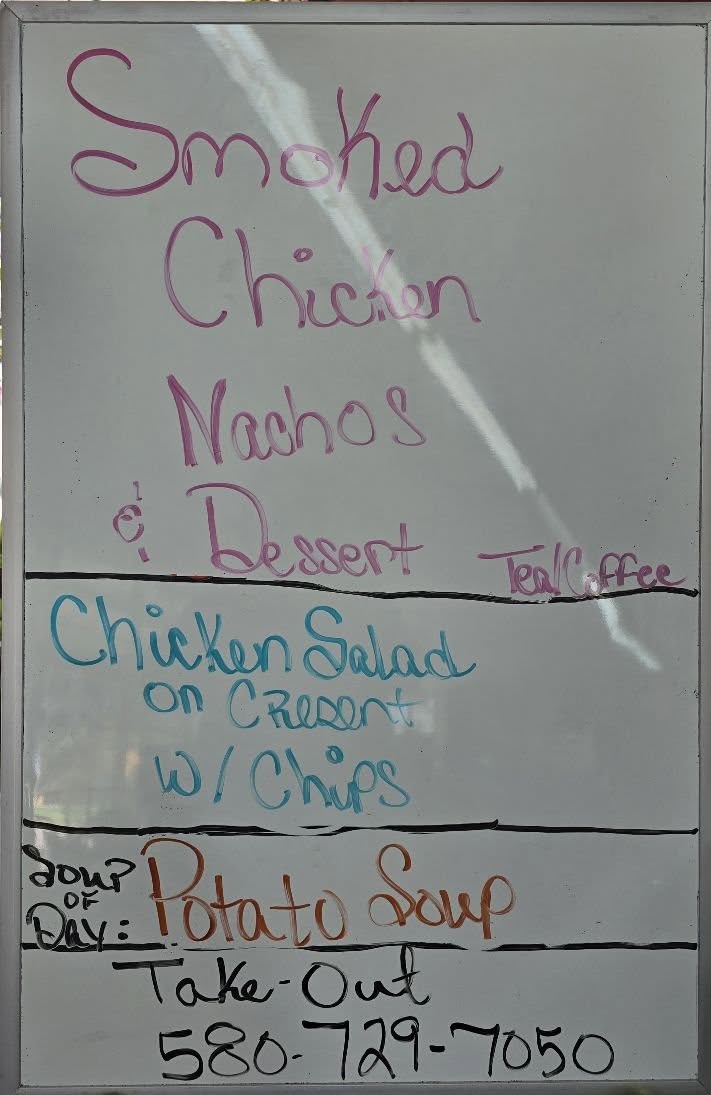 Smoked
Chicken
Nachos
& Dessert Tea/Coffee
Chicken Salad
on Cresent
w/ Chips
Soup
OF
Day: Potato Soup
Take-Out
580-729-7050